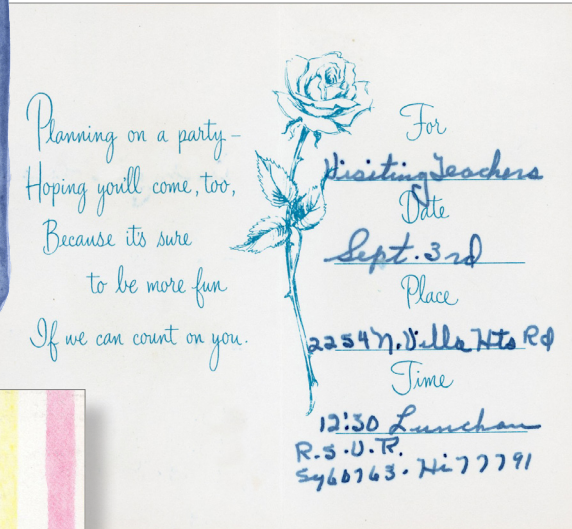 Planning on a party –
Hoping you'll come, too,
Because it's sure
to be more fun
If we can count on you.
For
Visiting Teachers
Date
Sept. 3rd
Place
2254 N. Villa Hts Rd
Time
12:30 Lunchon
R.S.V.P.
Sy60763. Hi77791